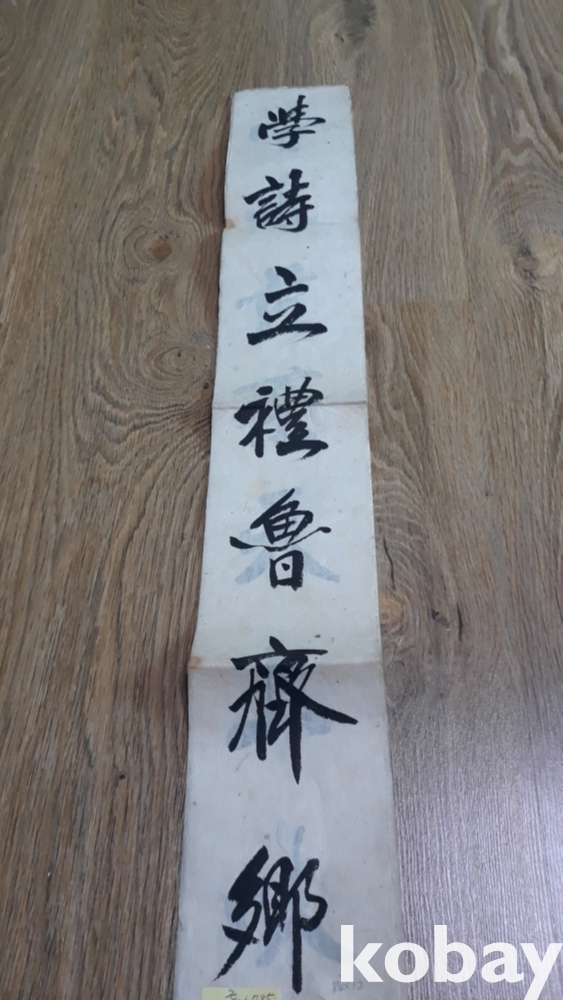 學詩立禮魯齊鄉
kobay